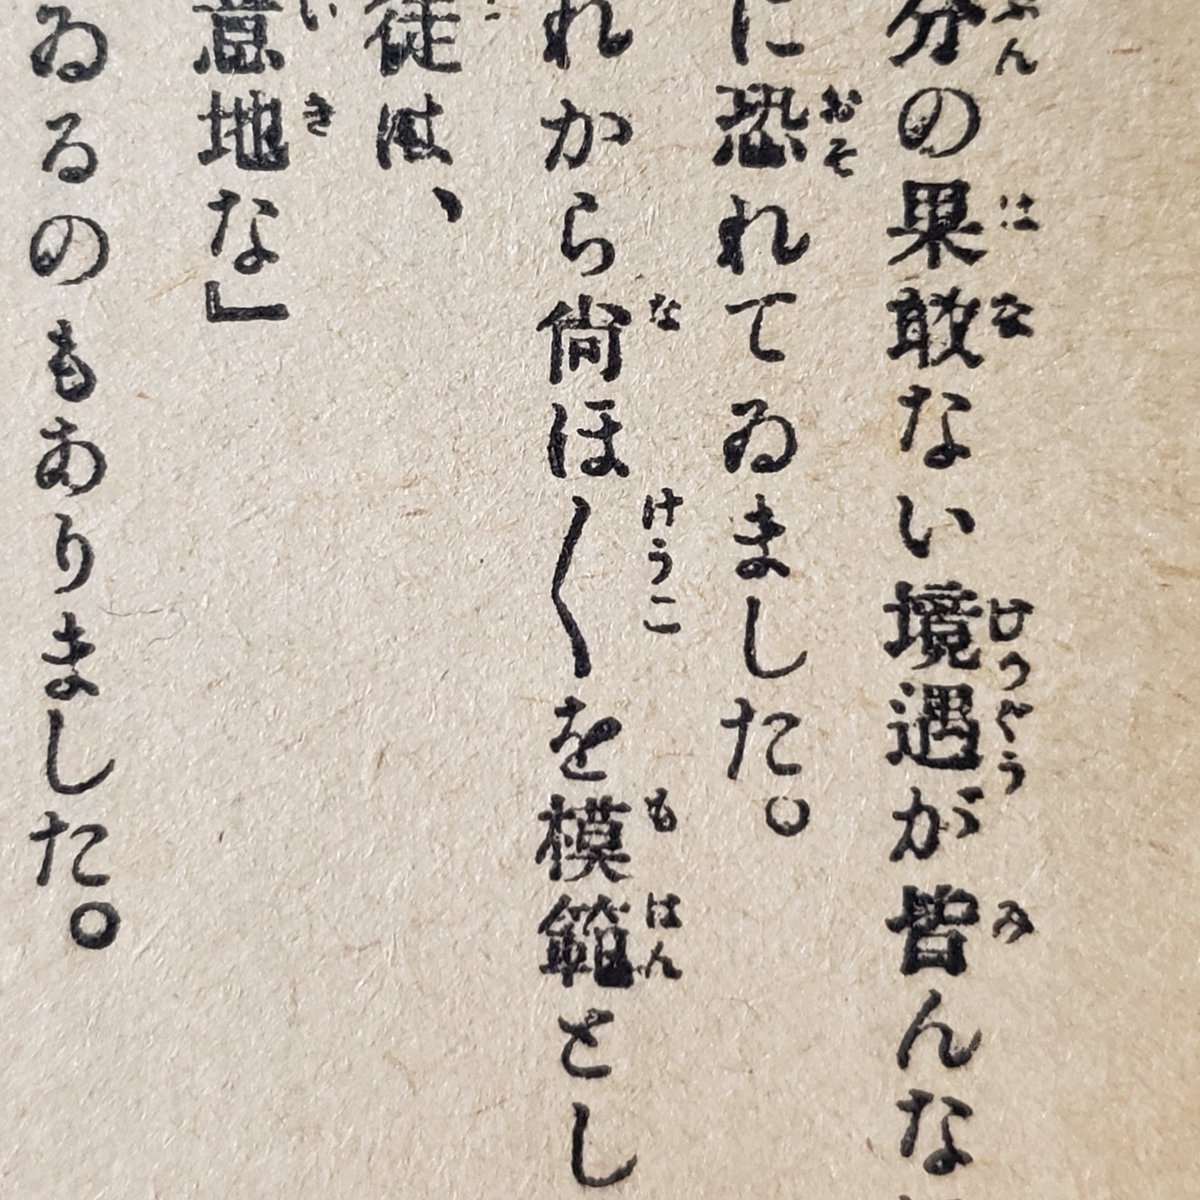 分の果敢ない境遇が皆んな
に恐れてゐました。
れから尙ほ〳〵を模範とし
徒は、
意地な」
ゐるのもありました。